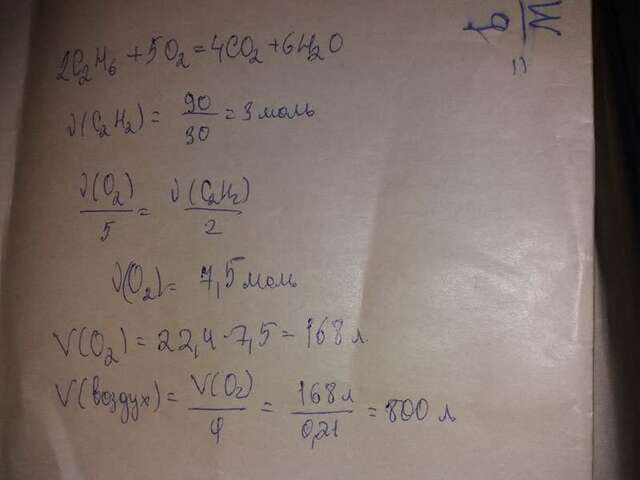 2C₂H₆ + 5O₂ = 4CO₂ + 6H₂O
ν(C₂H₂) = 90/30 = 3 моль
ν(O₂)/5 = ν(C₂H₂)/2
ν(O₂) = 7,5 моль
V(O₂) = 22,4 · 7,5 = 168 л
V(воздух) = V(O₂)/φ = 168 л/0,21 = 800 л